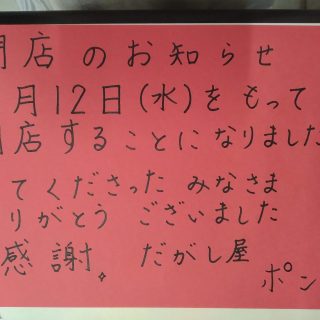 店のお知らせ
月12日(水)をもって
店することになりました
てくださった みなさま
りがとう ございました
感謝。 だがし屋
ポン